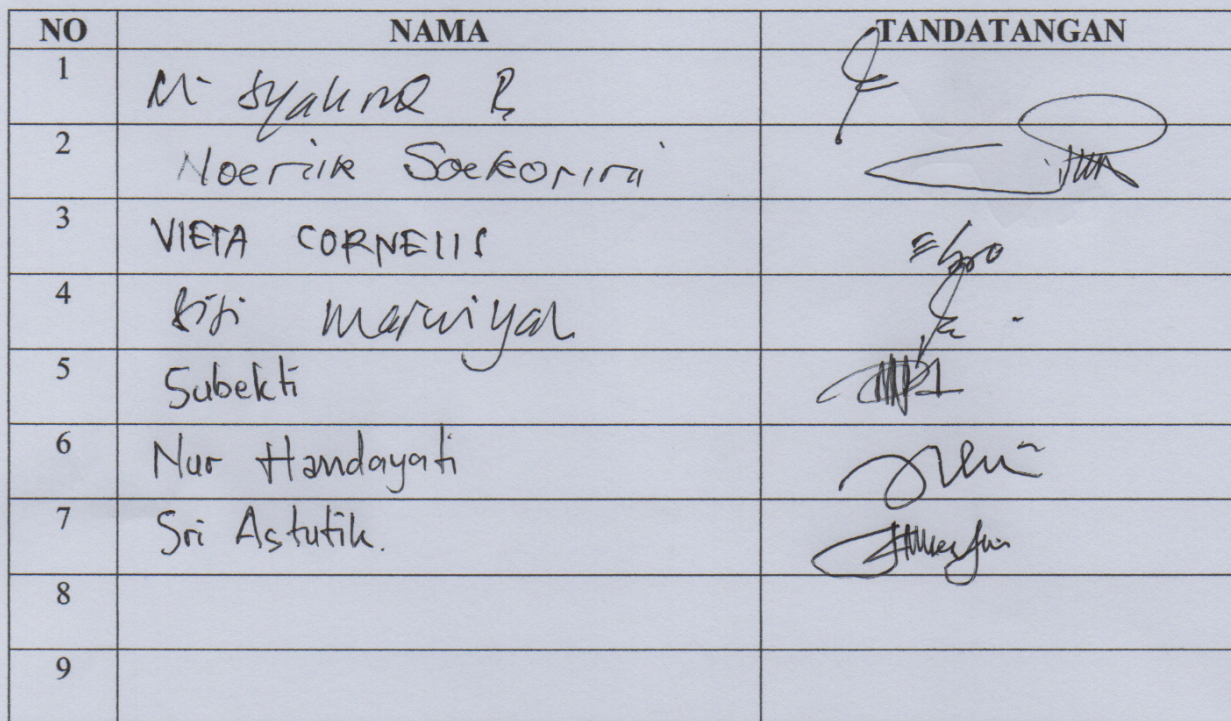 NO NAMA TANDATANGAN
1 M. Syahrul B
2 Noeriik Soekorini
3 VIETA CORNELIS
4 Siti Marwiyah
5 Subekti
6 Nur Handayati
7 Sri Astutik.
8
9